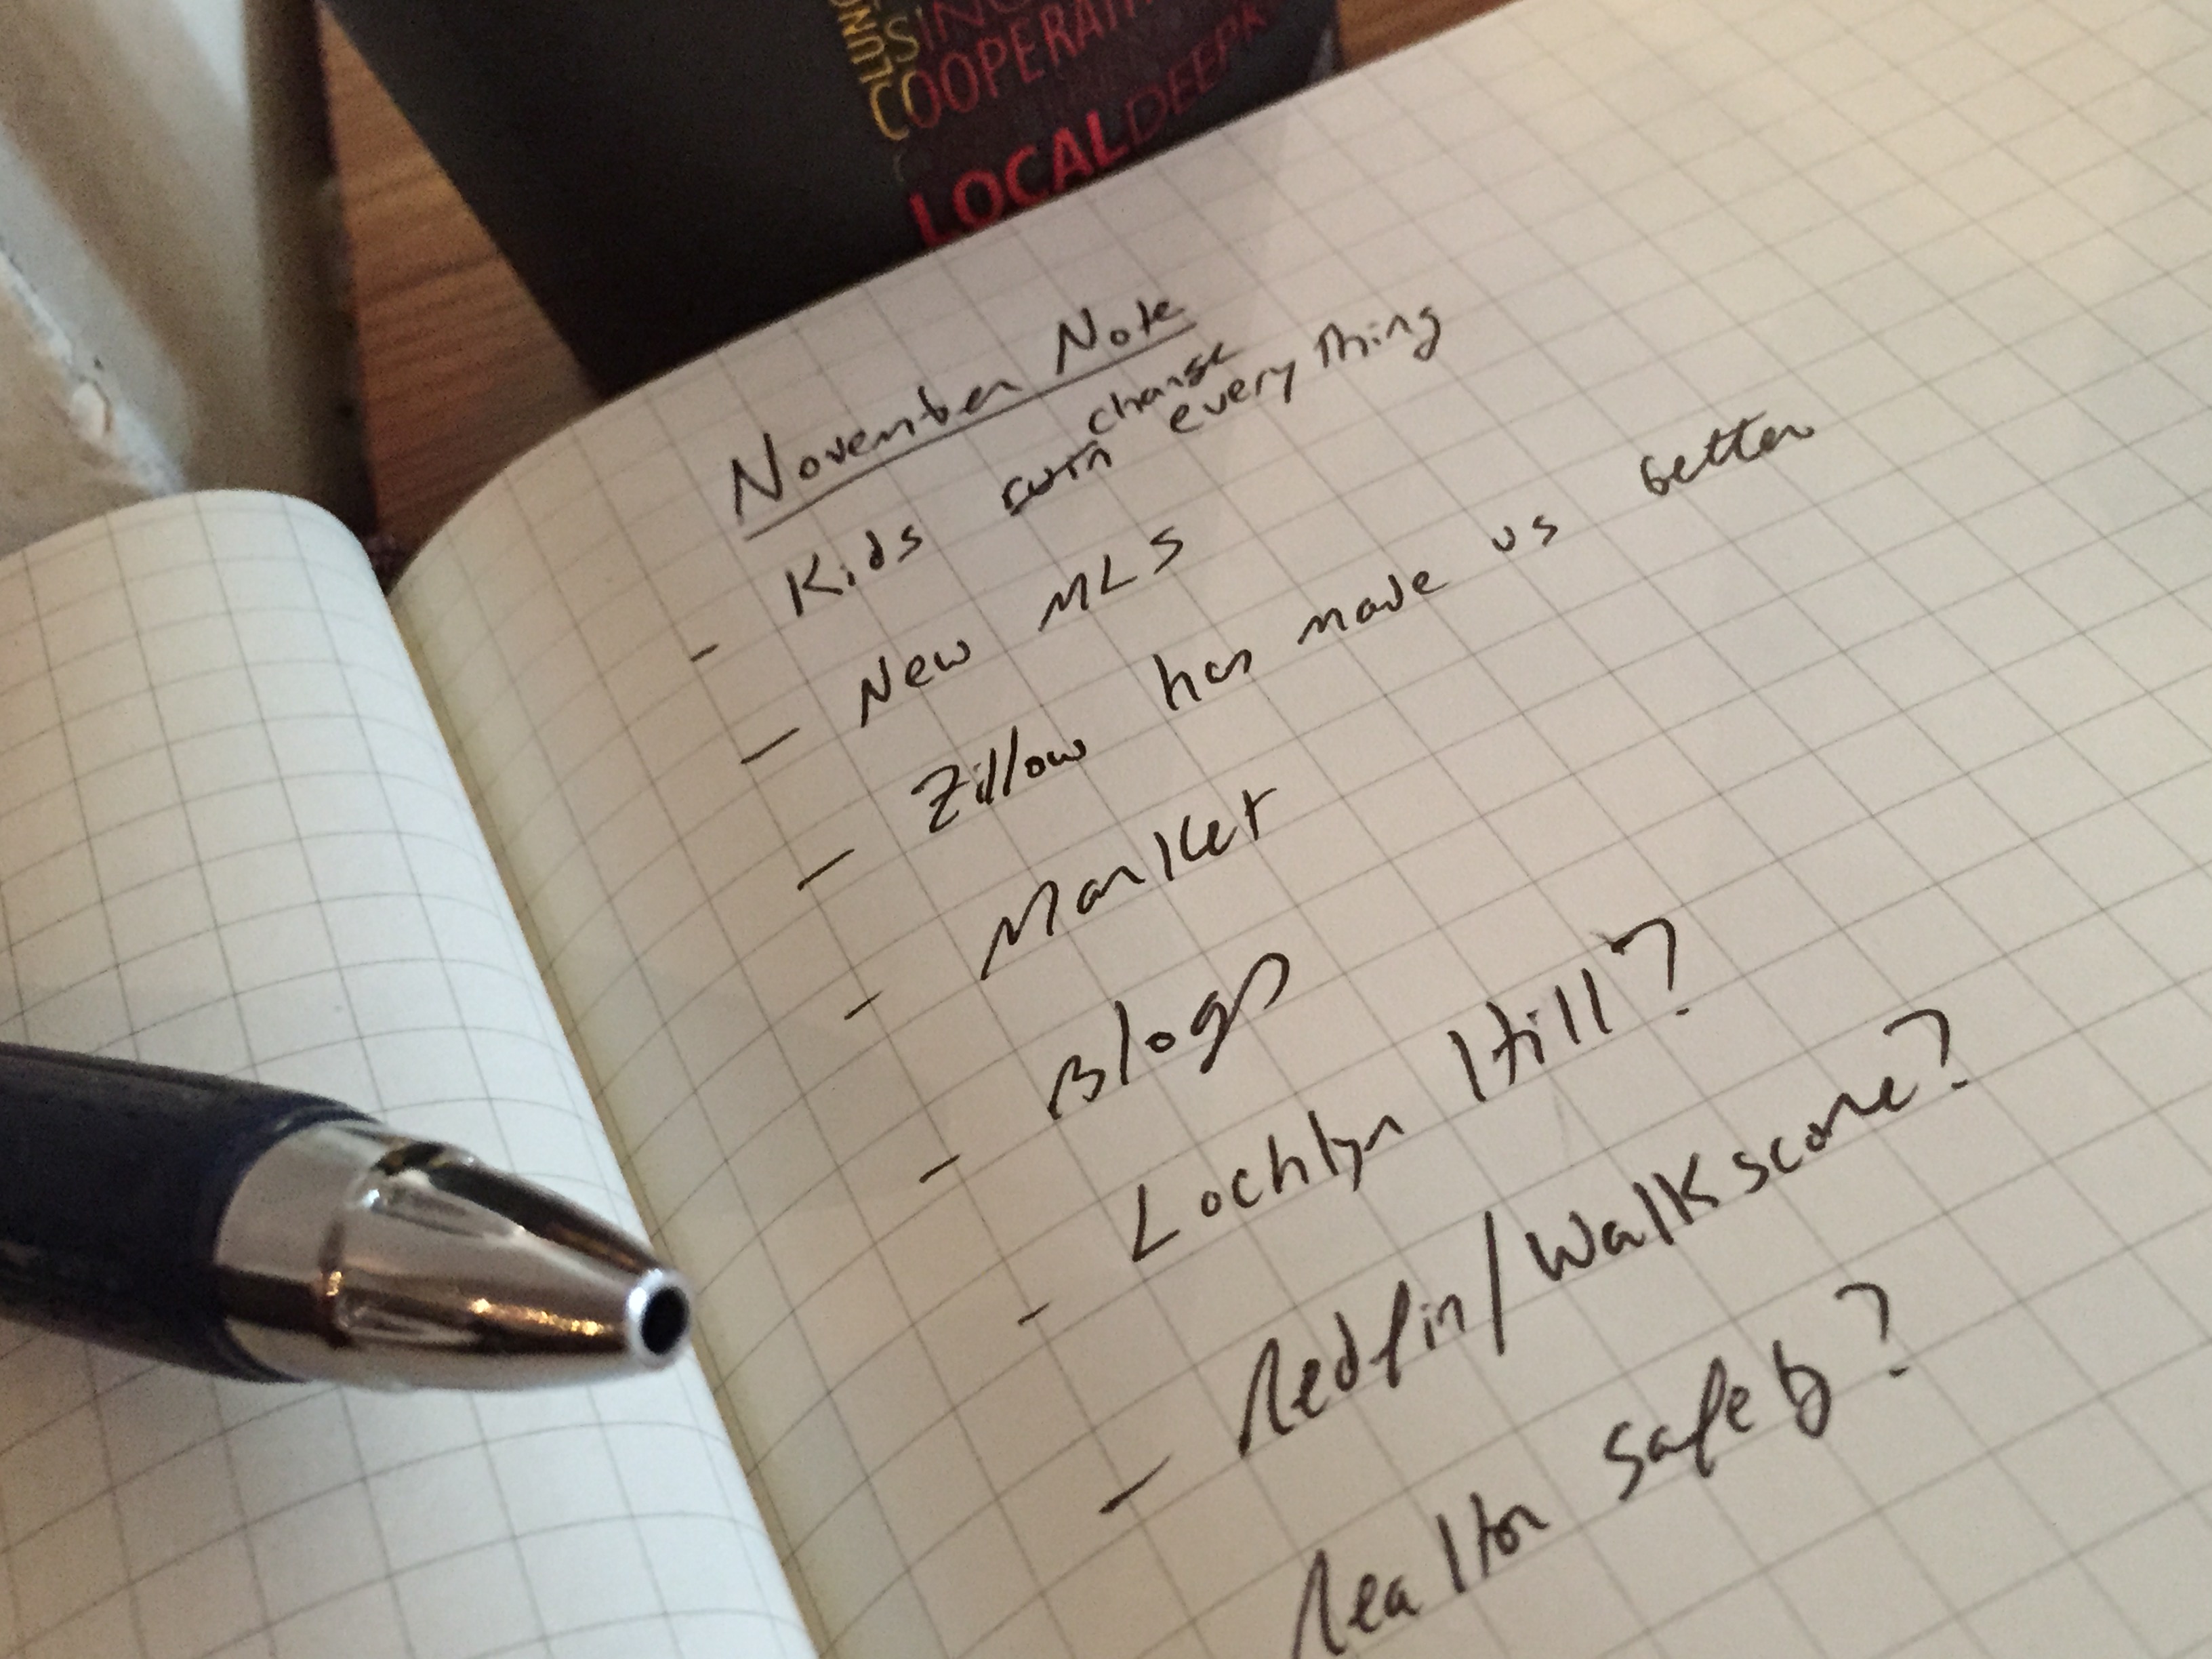 SING
COOPERATI
LOCAL DEEPR
November Note
- Kids ruin change everything
- New MLS
- Zillow has made us better
- Market
- Blogs
- Lochlyn Hill?
- Redfin/Walkscore?
Realtor Safety?